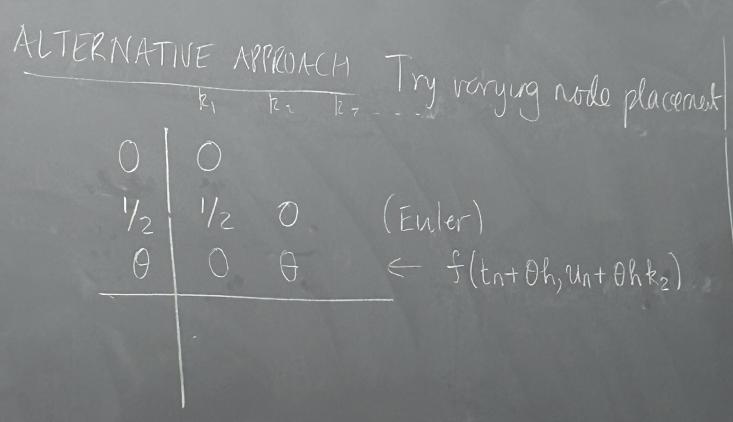 ALTERNATIVE APPROACH Try varying node placement
k₁ k₂ k₃ ....
0 0
1/2 1/2 0 (Euler)
θ 0 θ ← f(tn+θh, un+θhk₂)